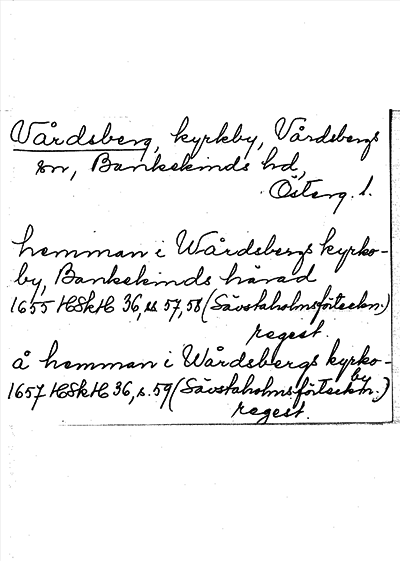 Vårdsberg, kyrkby, Vårdsbergs
sn, Bankekinds hd,
Österg. l.
hemman i Wårdsbergs kyrko-
by, Bankekinds härad
1655 HSkH 36, ss 57, 58 (Sävstaholmsförteckn.)
regest.
å hemman i Wårdsbergs kyrko-
by
1657 HSkH 36, s. 59 (Sävstaholmsförteckn.)
regest.